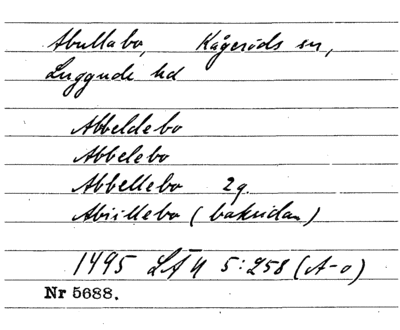 Abullabo, Kågeröds sn,
Luggude hd
Abbeldebo
Abbelebo
Abbellebo 2g.
Abüllebo (baksidan)
1495 LÄU 5:258 (A-o)
Nr 5688.